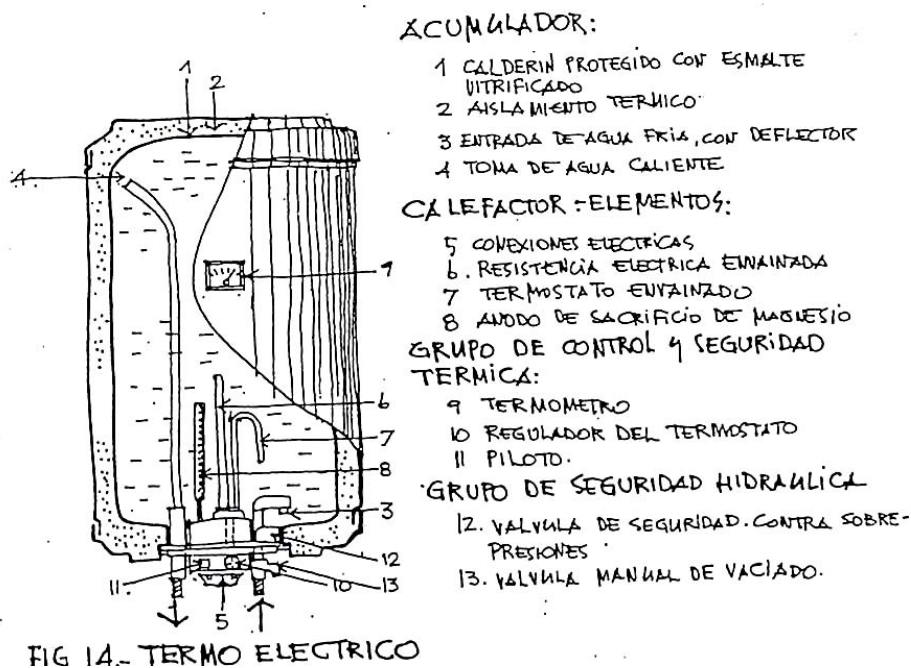 ACUMULADOR:
1 CALDERIN PROTEGIDO CON ESMALTE
VITRIFICADO
2 AISLAMIENTO TERMICO
3 ENTRADA DE AGUA FRIA, CON DEFLECTOR
4 TOMA DE AGUA CALIENTE
CALEFACTOR-ELEMENTOS:
5 CONEXIONES ELECTRICAS
6. RESISTENCIA ELECTRICA ENVAINADA
7 TERMOSTATO ENVAINADO
8 ANODO DE SACRIFICIO DE MAGNESIO
GRUPO DE CONTROL Y SEGURIDAD
TERMICA:
9 TERMOMETRO
10 REGULADOR DEL TERMOSTATO
11 PILOTO.
GRUPO DE SEGURIDAD HIDRAULICA
12. VALVULA DE SEGURIDAD. CONTRA SOBRE-
PRESIONES
13. VALVULA MANUAL DE VACIADO.
1
2
4
9
6
7
8
3
12
11
10
13
5
FIG 14.- TERMO ELECTRICO